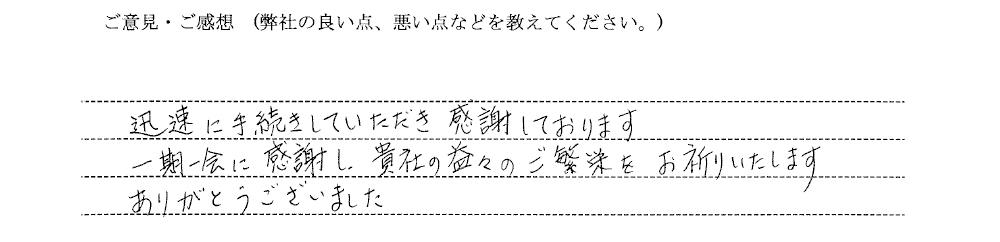 ご意見・ご感想　(弊社の良い点、悪い点などを教えてください。)
迅速に手続きしていただき 感謝しております
一期一会に 感謝し 貴社の益々のご繁栄を お祈りいたします
ありがとうございました